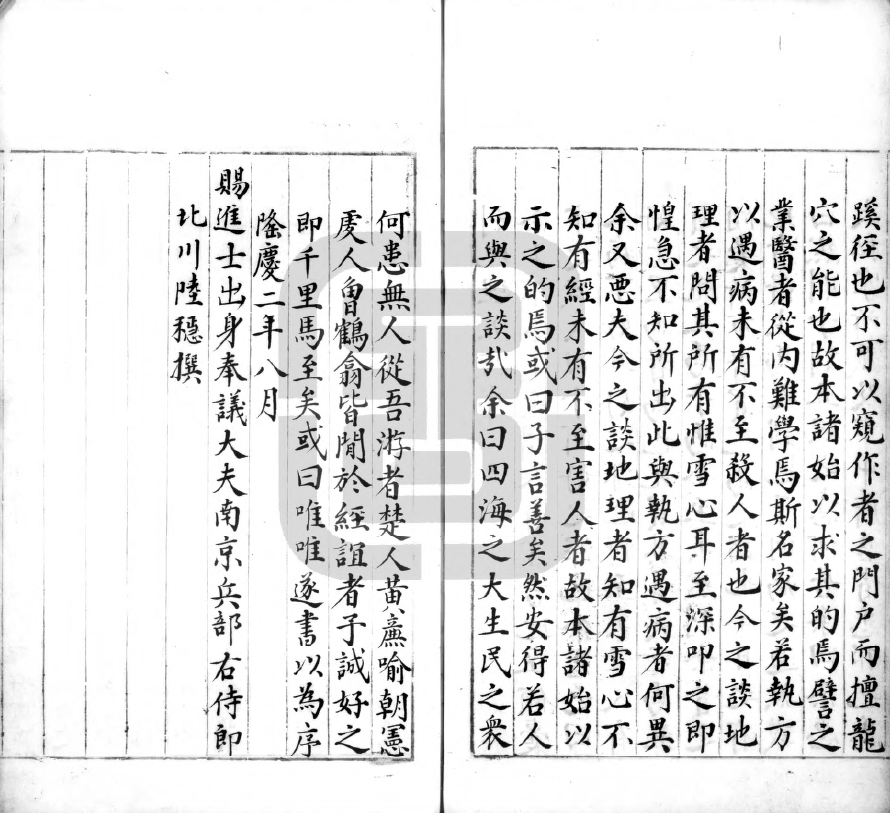 蹊徑也不可以窺作者之門户而擅龍
穴之能也故本諸始以求其的焉譬之
業醫者從内難學焉斯名家矣若執方
以遇病未有不至殺人者也今之談地
理者問其所有惟雪心耳至深叩之即
惶急不知所出此與執方遇病者何異
余又悪夫今之談地理者知有雪心不
知有經未有不至害人者故本諸始以
示之的焉或曰子言善矣然安得若人
而與之談㢤余曰四海之大生民之衆
何患無人從吾游者楚人黄㢘喻朝憲
䖏人曾鶴翕皆聞於經誼者子誠好之
即千里馬至矣或曰唯唯遂書以為序
隆慶二年八月
賜進士出身奉議大夫南京兵部右侍郎
北川陸穩撰